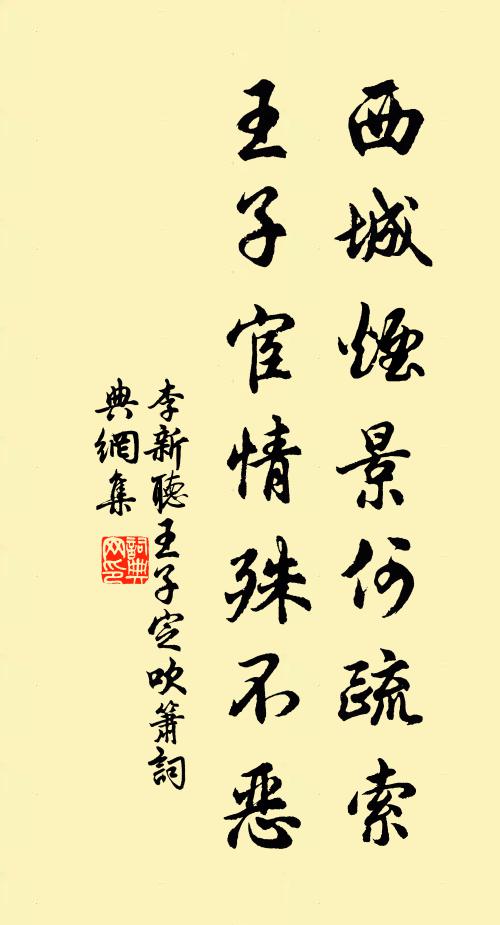 西城煙景何疏索
王子宦情殊不惡
李新聽王子定吹簫詞
典網集
詞典網印